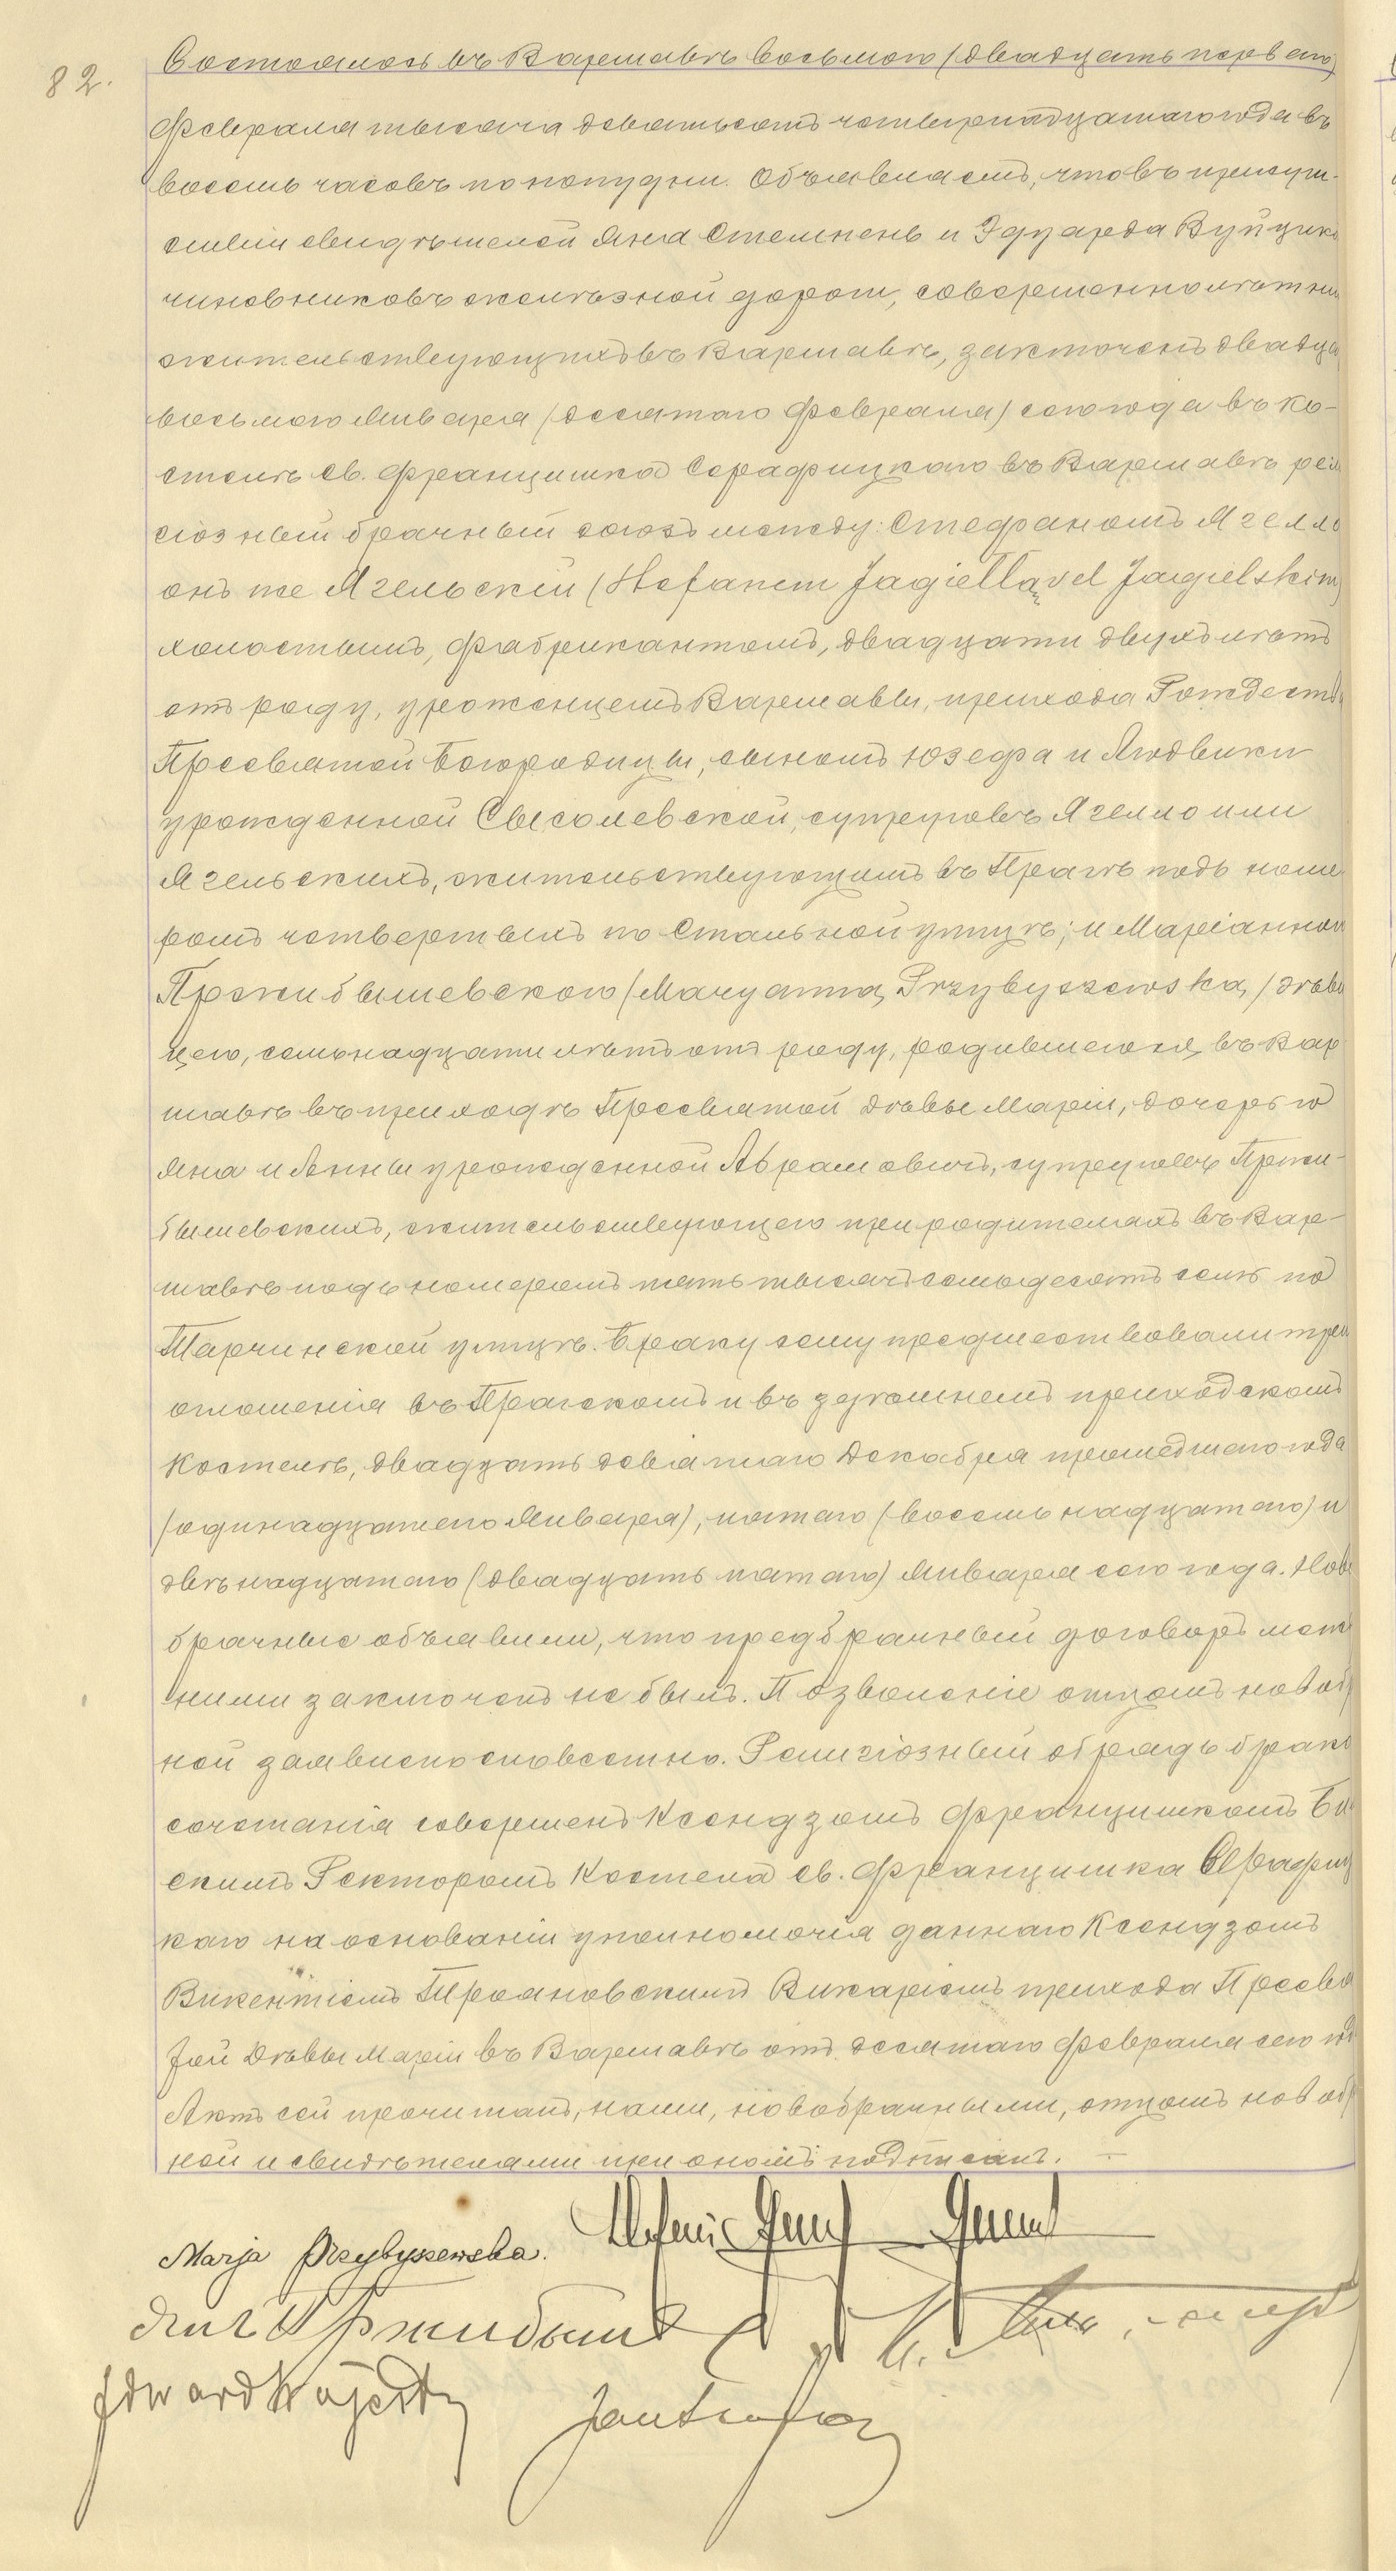 82.
Состоялось въ Варшавѣ восьмого /двадцать перваго/
Февраля тысяча девятьсотъ четырнадцатаго года въ
восемь часовъ по полудни. Объявляемъ, что въ присут-
ствіи свидѣтелей Яна Стемпень и Эдуарда Вуйцик
чиновниковъ желѣзной дороги, совершеннолѣтни
жительствующихъ въ Варшавѣ, заключенъ двадца
восьмого Января /десятаго Февраля/ сего года въ ко-
стелѣ св. Францишка Серафицкаго въ Варшавѣ рели
гіозный брачный союзъ между: Стефаномъ Ягелло
онъ же Ягельскій (Stefanem Jagiełłą vel Jagielskim)
холостымъ, фабрикантомъ, двадцати двухъ лѣтъ
отъ роду, уроженцемъ Варшавы, прихода Рождеств
Пресвятой Богородицы, сыномъ Юзефа и Людвики
урожденной, супруговъ Ягелло или
Ягельскихъ, жительствующимъ въ Прагѣ подъ номе
ромъ четвертымъ по Стальной улицѣ; и Маріанной
Пржибышевскою /Maryanną Przybyszewską/ дѣви
цею, семьнадцати лѣтъ отъ роду, родившеюся въ Вар
шавѣ въ приходѣ Пресвятой Дѣвы Маріи, дочерью
Яна и Анны урожденной Абрамовичъ, супруговъ Пржи-
бышевскихъ, жительствующею при родителяхъ въ Вар-
шавѣ подъ номеромъ пять тысячъ семьдесятъ семь по
Тарчинской улицѣ. Браку сему предшествовали три
оглашенія въ Пражскомъ и въ здѣшнемъ приходскомъ
Костелѣ, двадцать девятаго Декабря прошедшаго года
/одинадцатаго Января/, пятаго (восемьнадцатаго) и
двѣнадцатаго (двадцать пятаго) Января сего года. Ново
брачные объявили, что предбрачный договоръ меж
ними заключенъ не былъ. Позволеніе отцомъ новоб
ной заявлено словесно. Религіозный обрядъ брако
сочетанія совершенъ Ксендзомъ Францишкомъ
скимъ Ректоромъ Костела св. Францишка Серафиц
каго на основаніи уполномочія даннаго Ксендзомъ
Викентіемъ Трояновскимъ Викаріемъ прихода Пресвя
той Дѣвы Маріи въ Варшавѣ отъ десятаго Февраля сего год
Актъ сей прочитанъ, нами, новобрачными, отцомъ новобр
ной и свидѣтелями при ономъ подписанъ. —
Marja Przybyszewska.
Янъ Пржибыш
Edward Wójcicki
Jan